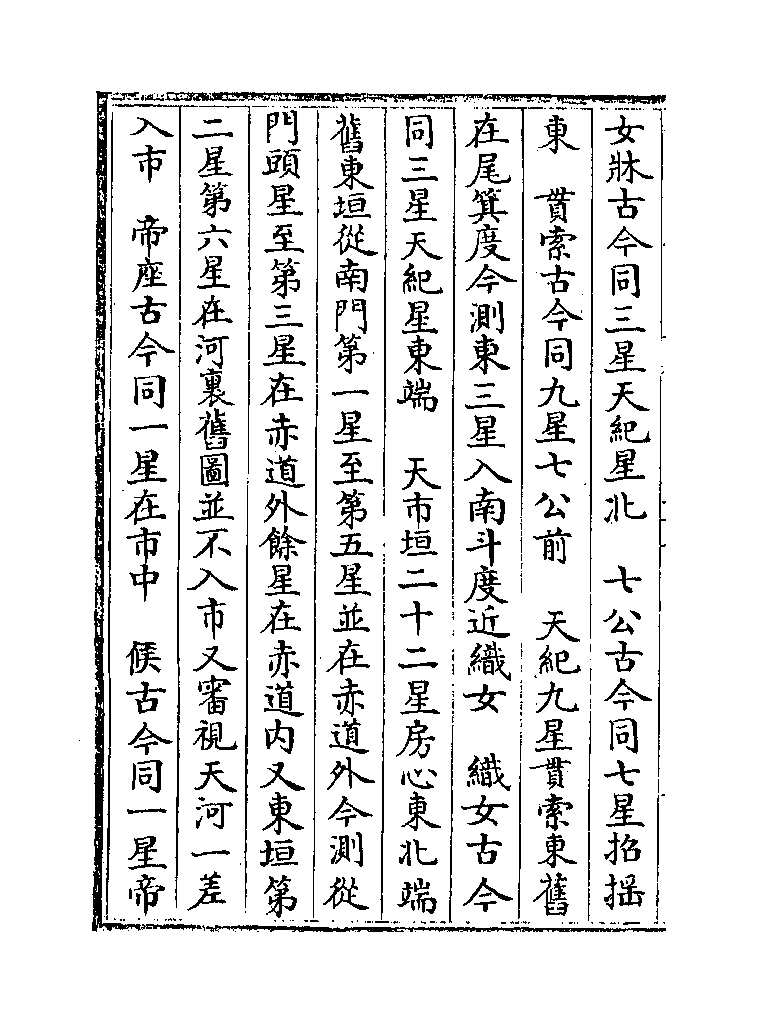 女牀古今同三星天紀星北　七公古今同七星招揺
東　貫索古今同九星七公前　天紀九星貫索東舊
在尾箕度今測東三星入南斗度近織女　織女古今
同三星天紀星東端　天市垣二十二星房心東北端
舊東垣從南門第一星至第五星並在赤道外今測從
門頭星至第三星在赤道外餘星在赤道内又東垣第
二星第六星在河裏舊圖並不入市又審視天河一差
入市　帝座古今同一星在市中　候古今同一星帝